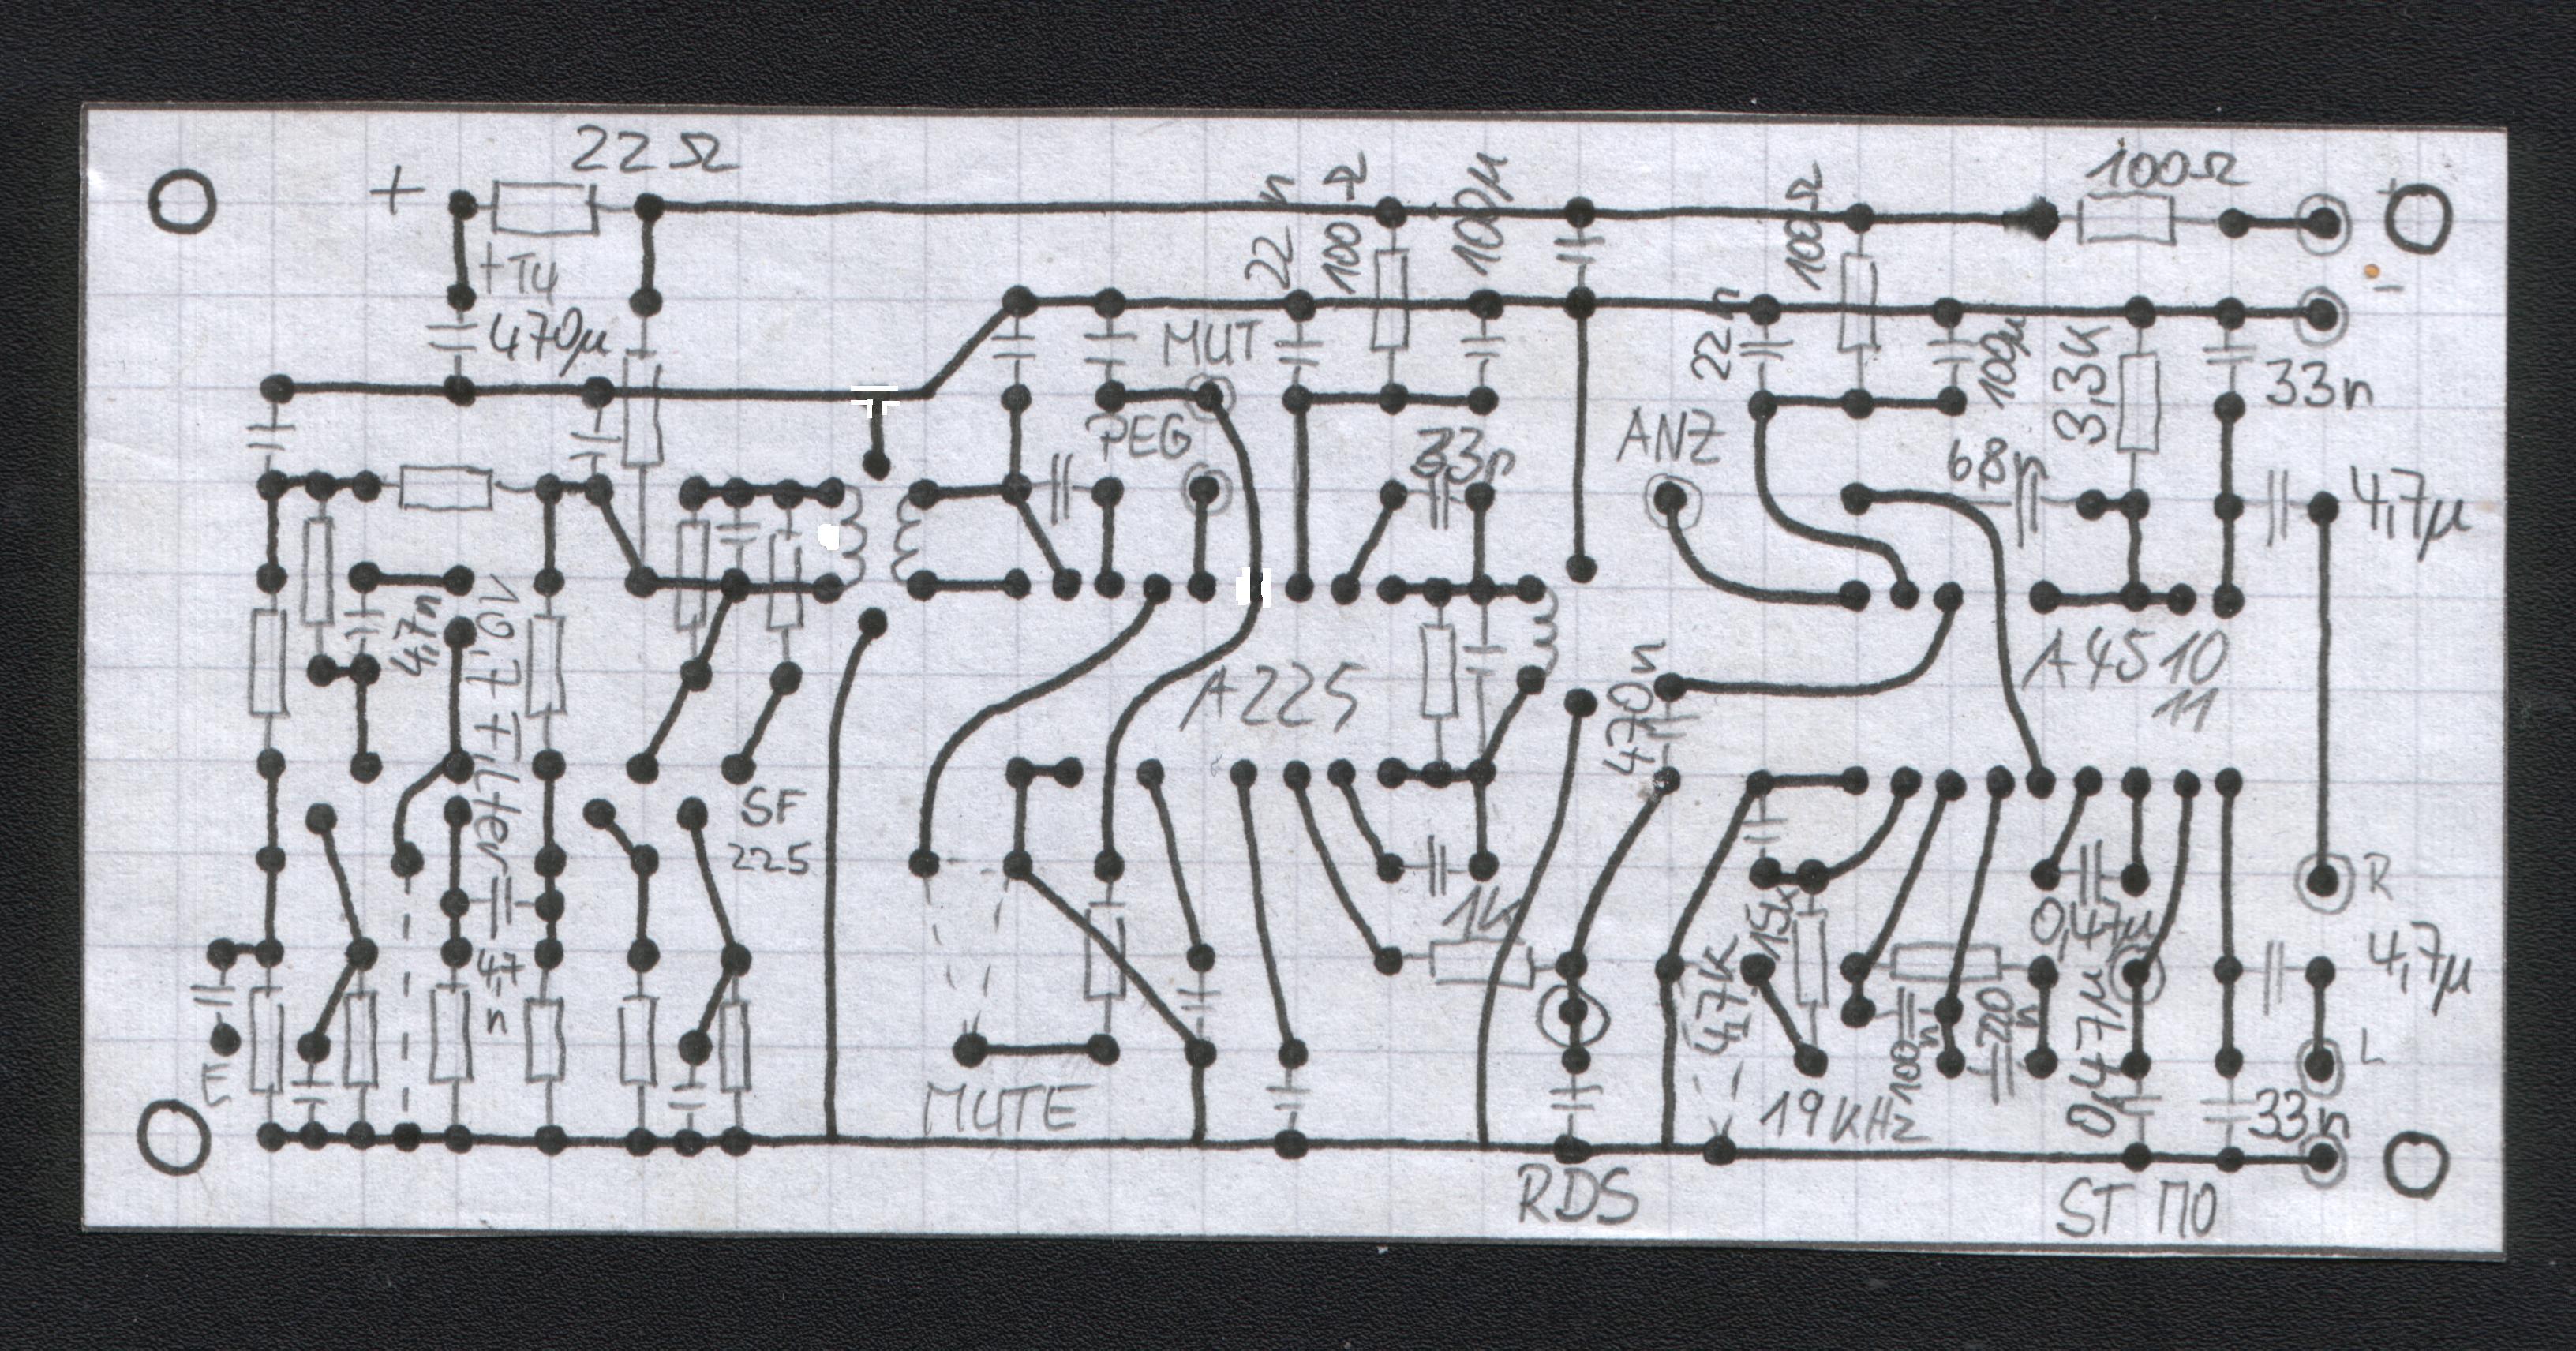 22Ω
100Ω
+
22n
100Ω
100µ
100Ω
+T4
470µ
-
MUT
22n
100µ
3,3K
33n
PEG
33n
ANZ
68n
4,7µ
4,7n
10,7 Filter
A225
470n
A4510
11
SF
225
R
1k
15K
0,47µ
4,7µ
47n
47K
100n
220n
0,47µ
L
E
MUTE
19KHz
33n
RDS
ST MO